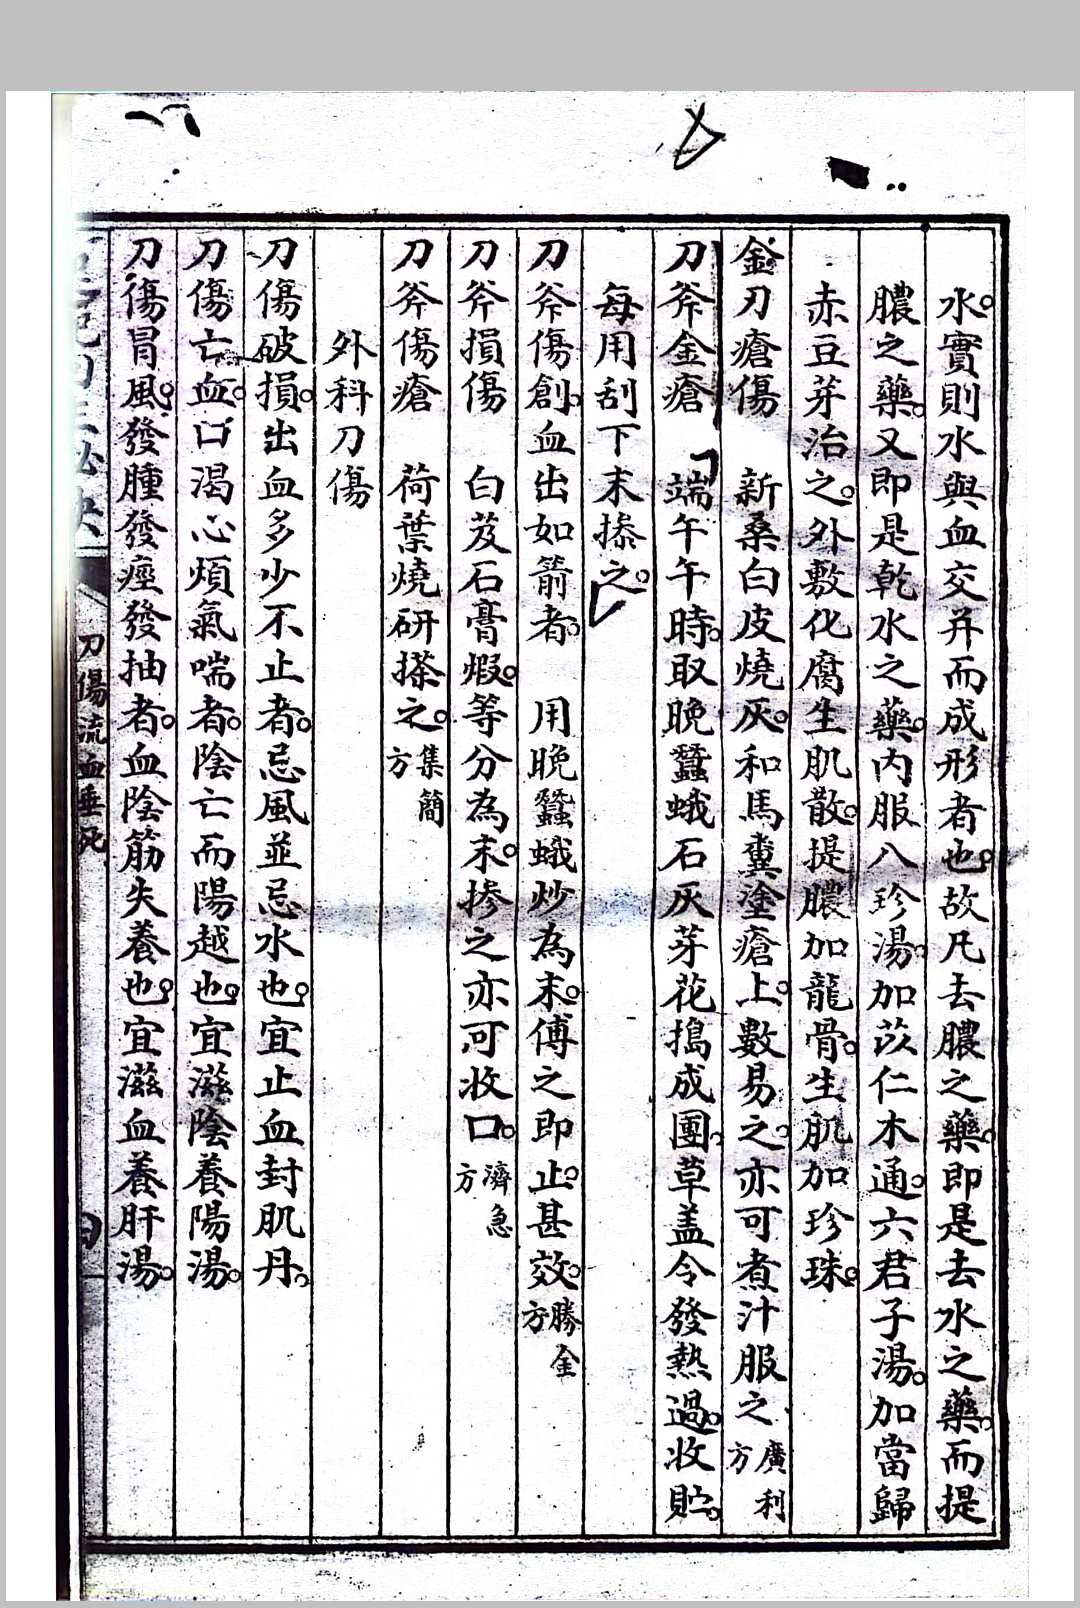 水實則水與血交并而成形者也故凡去膿之藥即是去水之藥而提
膿之藥又即是乾水之藥內服八珍湯加苡仁木通六君子湯加當歸
赤豆芽治之外敷化腐生肌散提膿加龍骨生肌加珍珠
金刃瘡傷　新桑白皮燒灰和馬糞塗瘡上數易之亦可煮汁服之廣利方
刀斧金瘡　端午午時取晚蠶蛾石灰芽花搗成團草盖令發熱過收貯
每用刮下末摻之
刀斧傷創血出如箭者　用晚蠶蛾炒為末傅之即止甚效勝金方
刀斧損傷　白芨石膏煆等分為末掺之亦可收口濟急方
刀斧傷瘡　荷葉燒研搽之集簡方
外科刀傷
刀傷破損出血多少不止者忌風並忌水也宜止血封肌丹
刀傷亡血口渴心煩氣喘者陰亡而陽越也宜滋陰養陽湯
刀傷冒風發腫發痙發抽者血陰筋失養也宜滋血養肝湯
刀傷流血垂死